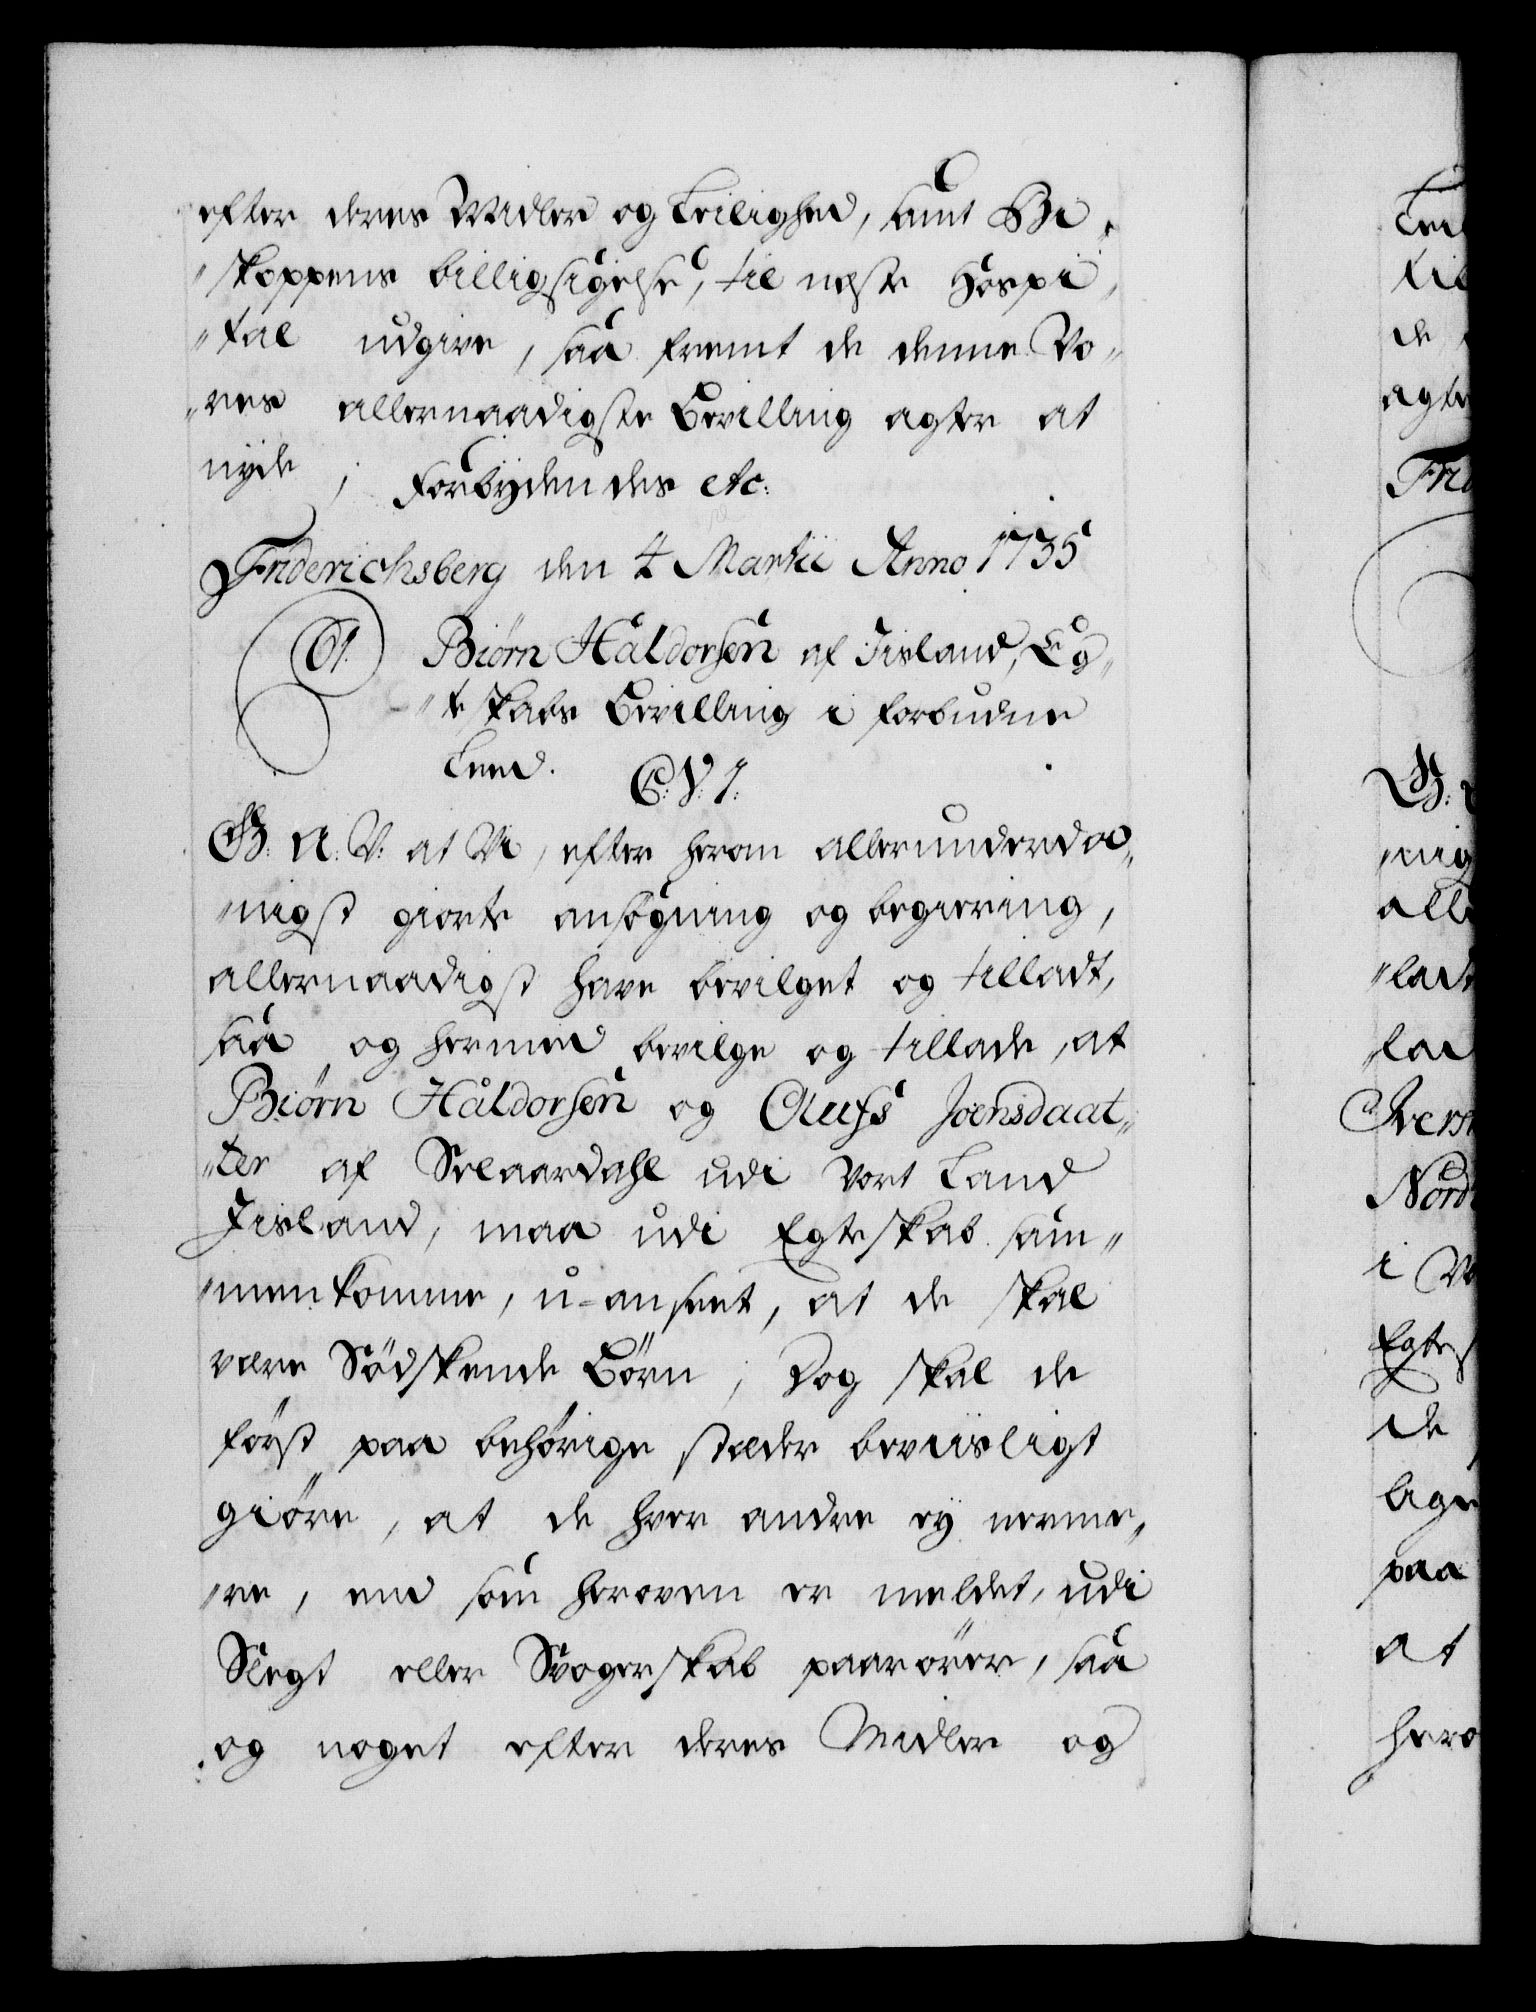 efter deres Midler og Leilighed, samt Bi„
„skoppens billigsigelse, til neste Hospi„
„tal udgive, saa fremt de denne Vo„
„res allernaadigste Bevilling agter at
nyde; Forbydendes etc:
Friderichsberg den 4 Martii Anno 1735
61. Biørn Haldorsen af Iisland, Eg„
„teskabs Bevilling i forbudne
Leed. C: V: 1:
G: A: V: at Vi, efter herom allerunderda„
„nigst giorte ansøgning og begiering,
allernaadigst have bevilget og tilladt,
saa og hermed bevilge og tillade, at
Biørn Haldorsen og Olufs Joensdaat„
„ter af Selaardahl udi Vort Land
Iisland, maa udi Egteskab sam„
„menkomme, u-anseet, at de skal
være Södskende Börn; Dog skal de
först paa behörige stæder beviisligt
giöre, at de hver andre ey nerme„
„re, end som heroven er meldet, udi
Slegt eller Svogerskab paarörer, saa
og noget efter deres Midler og